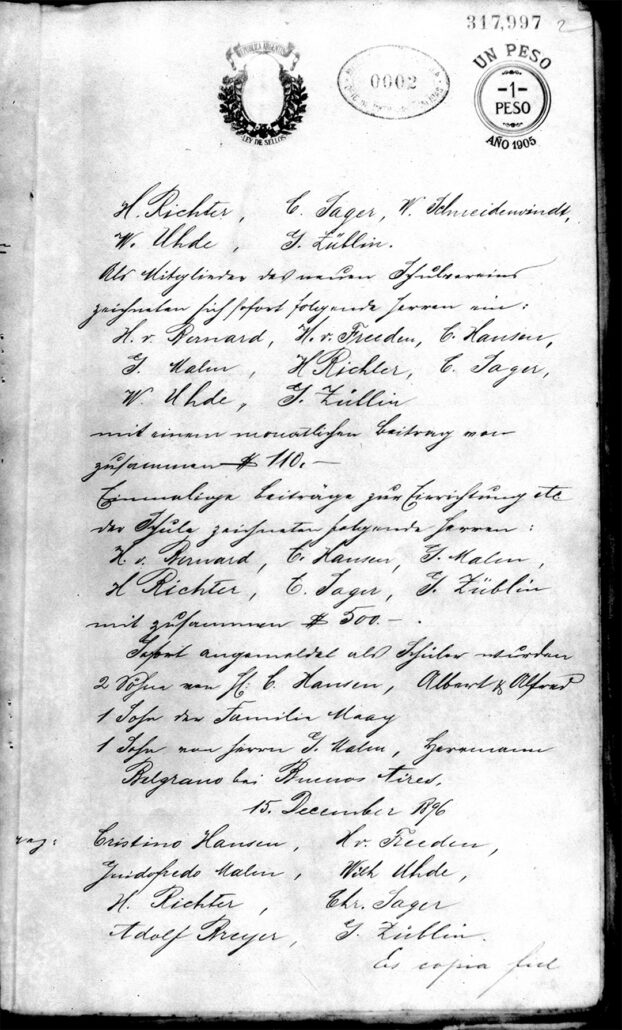 317,997 2
REPUBLICA ARGENTINA
LEY DE SELLOS
0002
UN PESO
-1-
PESO
AÑO 1905
H. Richter, C. Jager, W. Schneidewindt,
W. Uhde, G. Züblin.
Als Mitglieder des neuen Schulvereins
zeichneten sich sofort folgende Herren ein:
H. v. Bernard, H. v. Freeden, C. Hansen,
G. Malm, H Richter, C. Jager,
W. Uhde, G. Züblin
mit einem monatlichen Beitrag von
zusammen $ 110.-
Einmalige Beiträge zur Einrichtung etc
der Schule zeichneten folgende Herren:
H. v. Bernard, C. Hansen, G. Malm,
H Richter, C. Jager, G. Züblin
mit zusammen $ 500.-.
Sofort angemeldet als Schüler wurden
2 Söhne von H: C. Hansen, Albert & Alfred
1 Sohn der Familie Maag
1 Sohn von Herrn G. Malm, Herrmann
Belgrano bei Buenos Aires,
15. December 1896
gez: Cristino Hansen, H v. Freeden,
Guidofredo Malm, Wilh Uhde,
H. Richter, Chr. Jager
Adolf Breyer, G. Züblin.
Es copia fiel